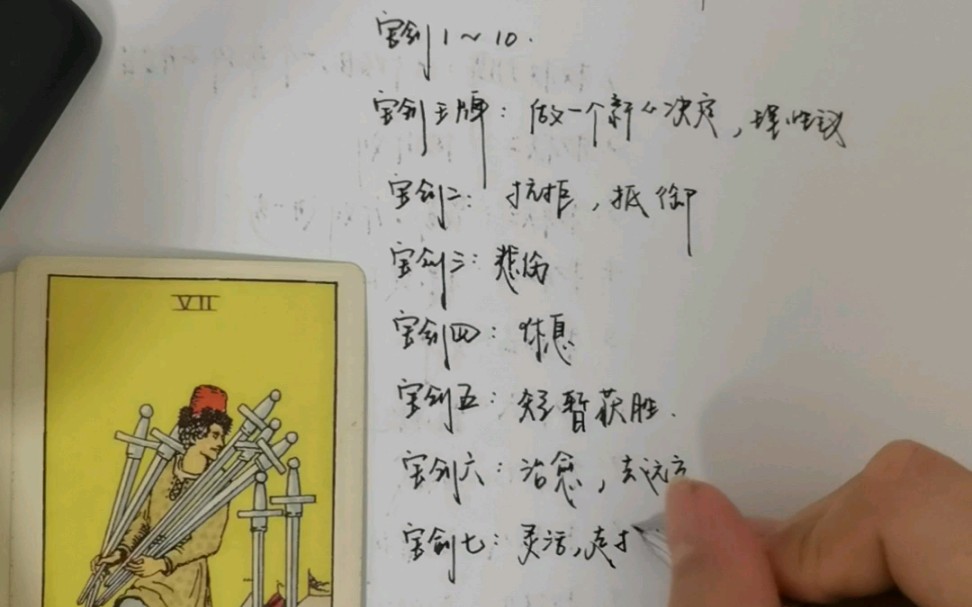 宝剑1~10.
宝剑王牌：做一个新的决定，理性的
宝剑二：抗拒，抵御
宝剑三：悲伤
宝剑四：休息
宝剑五：短暂获胜.
宝剑六：治愈，去远方
宝剑七：灵活，走
VII